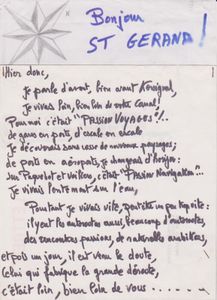 Bonjour
ST GERAND !
Hier donc,
Je parle d'avant, bien avant
Je vivais loin, bien loin de votre Canal !
Pour moi c'était "PASSION VOYAGES"!..
de gares en ports, d'escale en escale
Je découvrais sans cesse de nouveaux paysages;
de ports en aéroports, je changeais d'horizon:
sur Paquebot et voiliers, c'était "PASSION Navigation"...
Je vivais lentement sur l'eau,
Pourtant je vivais vite, peut-être un peu trop vite :
il y eut les autoroutes aussi, beaucoup d'autoroutes,
des rencontres passions, de naturelles ambitions,
et puis un jour, il est venu le doute,
Celui qui fabrique la grande déroute,
c'était loin, bien loin de vous ......